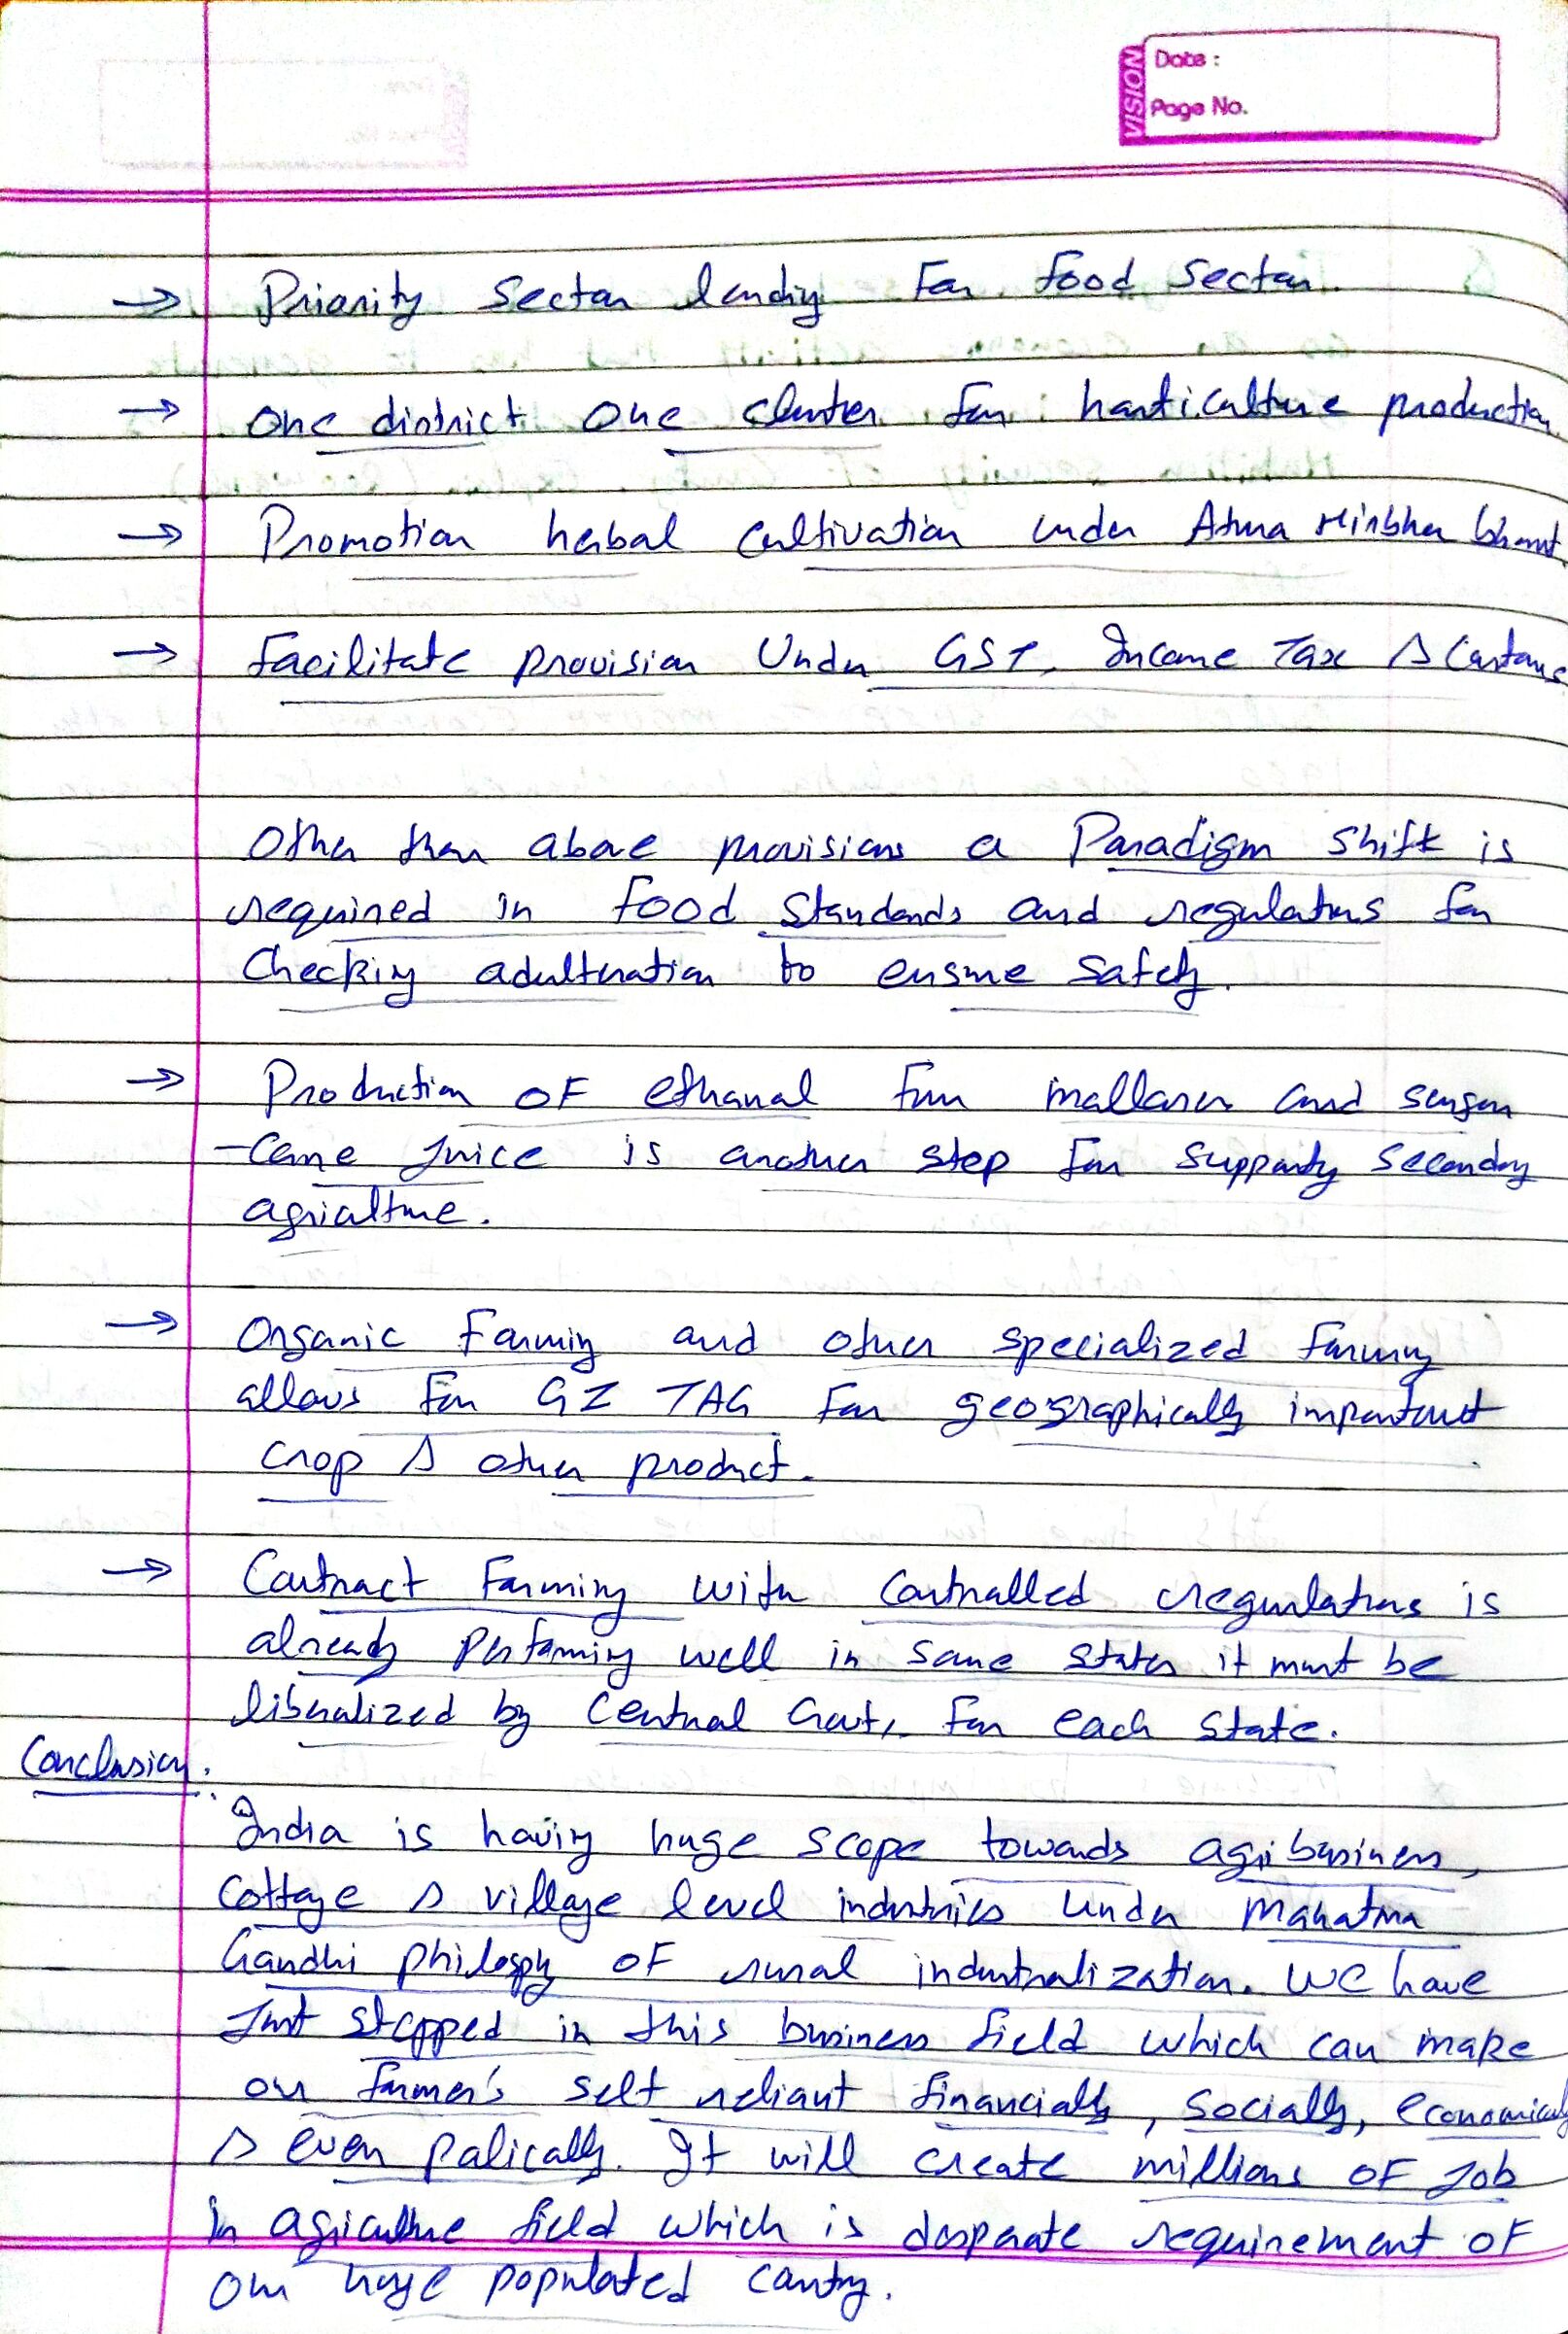 VISION
Date :
Page No.
→ Priority Sector lending For food sector.
→ One district One cluster for horticulture production
→ Promotion herbal cultivation under Atma Nirbhar bharat
→ facilitate provision Under GST, Income Tax & Customs
Other than above provisions a Paradigm shift is
required in food standards and regulations for
Checking adulteration to ensure safety.
→ Production OF ethanol from mollases and sugar
-cane juice is another step for supporting secondary
agriculture.
→ Organic Farming and other specialized farming
allows for GI TAG For geographically important
crop & other product.
→ Contract Farming with controlled regulations is
already performing well in some states it must be
liberalized by Central Govt, for each state.
Conclusion:
India is having huge scope towards agribusiness,
Cottage & village level industries under Mahatma
Gandhi philospy OF rural industralization. We have
Just stepped in this business field which can make
our farmer's self reliant financially, socially, economically
& even polically. It will create millions OF Job
in agriculture field which is desperate requirement of
our huge populated contry.